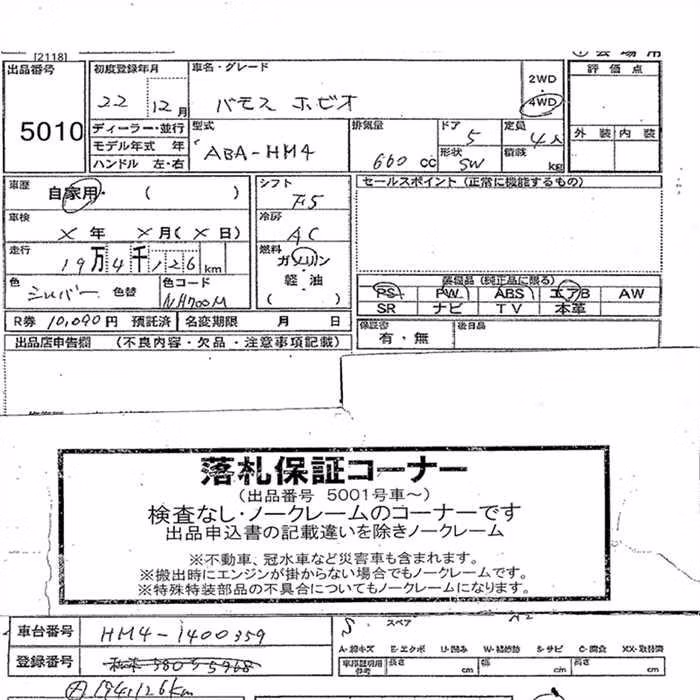 [2118]
出品番号 初度登録年月 車名・グレード 評価点
5010 22 12月 バモス ホビオ 2WD 4WD
ディーラー・並行 型式 排気量 ドア 定員 外装 内装
モデル年式 年 ABA-HM4 660 cc 5 4人
ハンドル 左・右 形状 SW 積載 kg
車歴 自家用・( ) シフト F5 セールスポイント (正常に機能するもの)
車検 × 年 × 月 ( × 日) 冷房 AC
走行 19万4千126km 燃料 ガソリン・軽・油 ( )
色 シルバー 色替 色コード NH700M
装備品 (純正品に限る)
PS PW ABS エアB AW
SR ナビ TV 本革
R券 10,090円 預託済 名変期限 月 日
保証書 有・無 後日品
出品店申告欄 (不良内容・欠品・注意事項記載)
落札保証コーナー
(出品番号 5001号車~)
検査なし・ノークレームのコーナーです
出品申込書の記載違いを除きノークレーム
※不動車、冠水車など災害車も含まれます。
※搬出時にエンジンが掛からない場合でもノークレームです。
※特殊特装部品の不具合についてもノークレームになります。
車台番号 HM4-1400359 スペア
A-線キズ E-エクボ U-凹み W-補修跡 S-サビ C-腐食 XX-取替済
登録番号 長さ cm 幅 cm 高さ cm
194126km